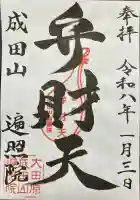 奉拝 令和八年一月三日
弁財天
成田山 遍照院
大田原